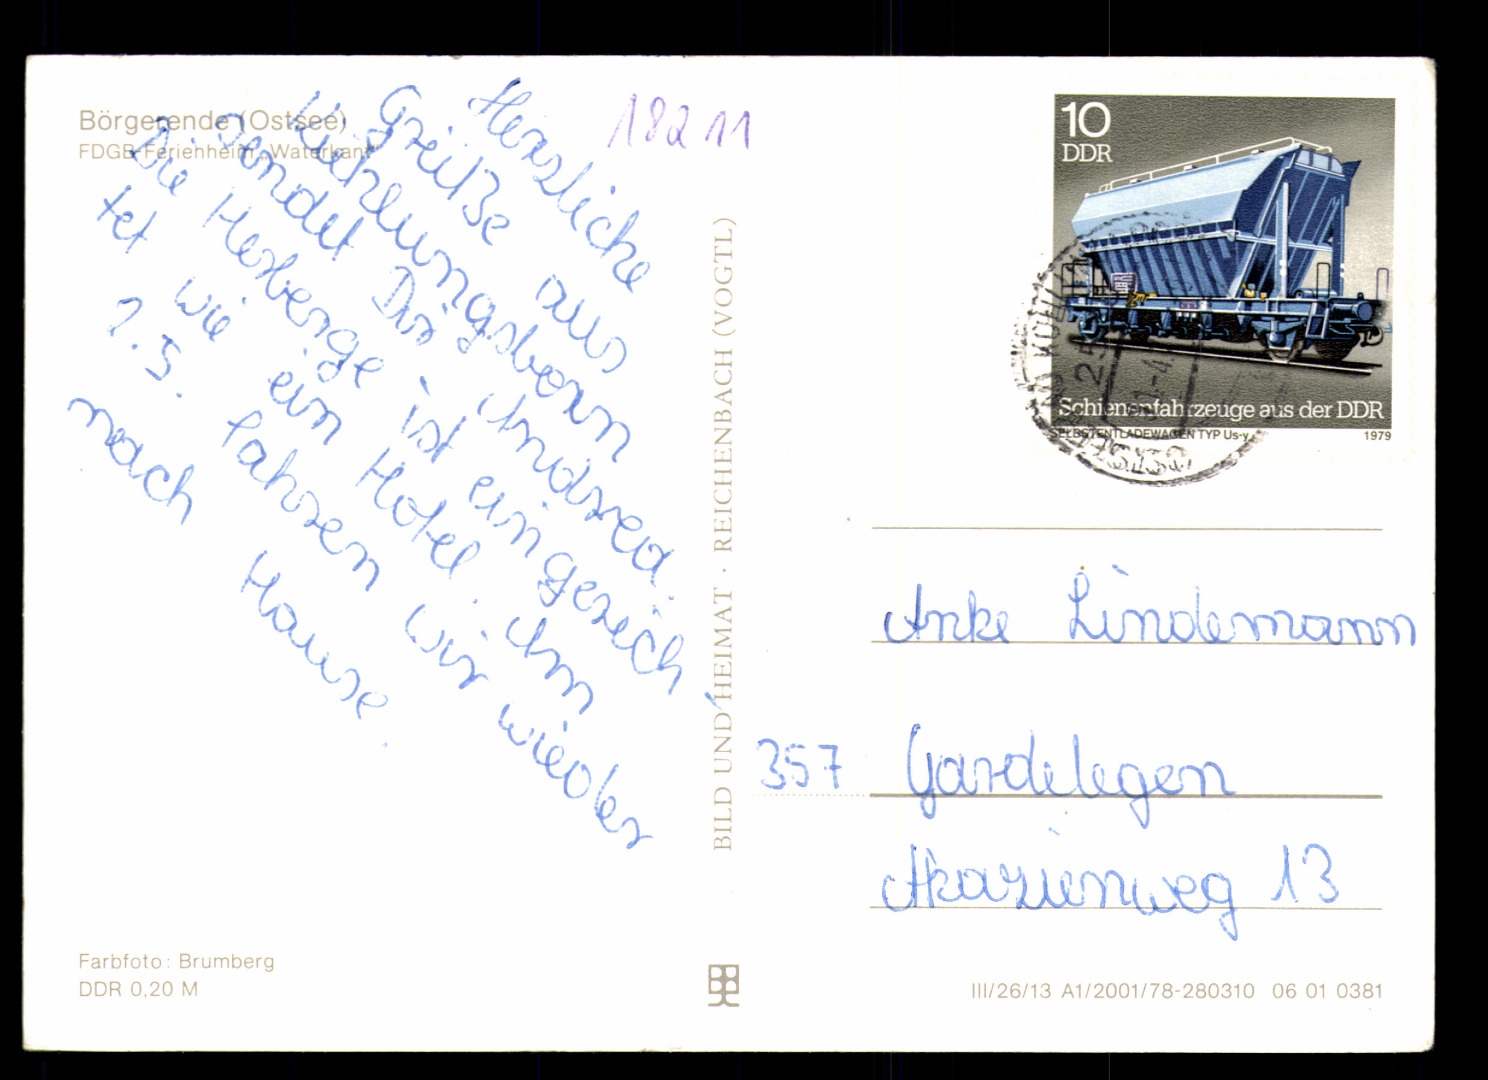 Börgerende (Ostsee)
FDGB-Ferienheim „Waterkant“
18211
Herzliche
Grüße aus
Kühlungsborn
sendet Dir Andrea.
Die Herberge ist eingerich-
tet wie ein Hotel. Am
1.5. fahren wir wieder
nach Hause.
Farbfoto: Brumberg
DDR 0,20 M
BILD UND HEIMAT · REICHENBACH (VOGTL)
10
DDR
Schienenfahrzeuge aus der DDR
SELBSTENTLADEWAGEN TYP Us-y
1979
25
Anke Lindemann
357 Gardelegen
Akazienweg 13
III/26/13 A1/2001/78-280310 06 01 0381